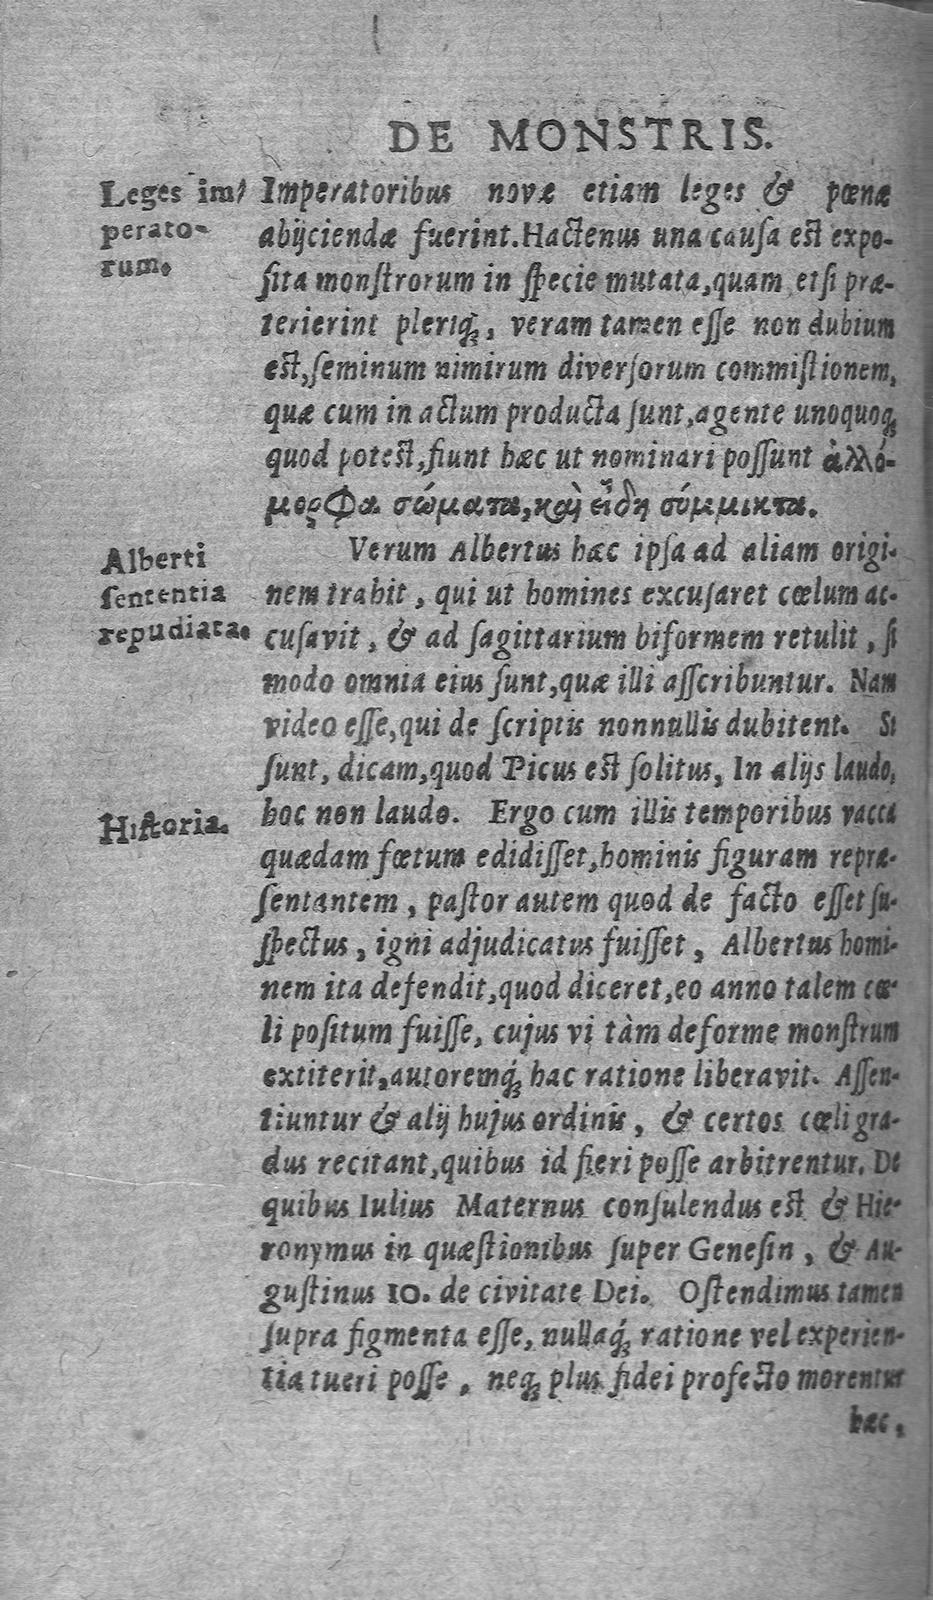 DE MONSTRIS.
Leges im-
perato-
rum.
Imperatoribus novæ etiam leges & pœnæ
abijciendæ fuerint. Hactenus una causa est expo-
sita monstrorum in specie mutata, quam etsi præ-
terierint pleriq́;, veram tamen esse non dubium
est, seminum nimirum diversorum commistionem,
quæ cum in actum producta sunt, agente unoquoq;
quod potest, fiunt hæc ut nominari possunt ἀλλό-
μορφα σώματα, καὶ εἴδη σύμμικτα.
Alberti
sententia
repudiata.
Verum Albertus hæc ipsa ad aliam origi-
nem trahit, qui ut homines excusaret cœlum ac-
cusavit, & ad sagittarium biformem retulit, si
modo omnia eius sunt, quæ illi asscribuntur. Nam
video esse, qui de scriptis nonnullis dubitent. Si
sunt, dicam, quod Picus est solitus, In alijs laudo,
Historia.
hoc non laudo. Ergo cum illis temporibus vacca
quædam fœtum edidisset, hominis figuram repræ-
sentantem, pastor autem quod de facto esset su-
spectus, igni adjudicatus fuisset, Albertus homi-
nem ita defendit, quod diceret, eo anno talem cœ-
li positum fuisse, cujus vi tàm deforme monstrum
extiterit, autoremq́; hac ratione liberavit. Assen-
tiuntur & alij hujus ordinis, & certos cœli gra-
dus recitant, quibus id fieri posse arbitrentur. De
quibus Iulius Maternus consulendus est & Hie-
ronymus in quæstionibus super Genesin, & Au-
gustinus 10. de civitate Dei. Ostendimus tamen
supra figmenta esse, nullaq́; ratione vel experien-
tia tueri posse, neq; plus fidei profecto morentur
hæc,